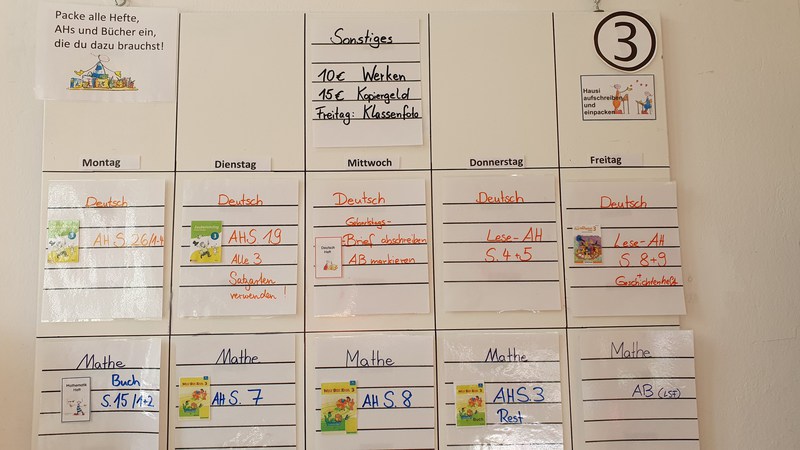 Packe alle Hefte,
AHs und Bücher ein,
die du dazu brauchst!
Sonstiges
10€ Werken
15€ Kopiergeld
Freitag: Klassenfoto
3
Hausi
aufschreiben
und
einpacken
Montag
Dienstag
Mittwoch
Donnerstag
Freitag
Deutsch
AH S. 26/1-4
Deutsch
AHS 19
Alle 3
Satzarten
verwenden!
Deutsch
Geburtstags-
Brief abschreiben
AB markieren
Deutsch
Heft
Deutsch
Lese-AH
S. 4+5
Deutsch
Lese-AH
S. 8+9
+
Geschichtenheft
Mathe
Buch
S. 15/1+2
Mathematik
Heft
Mathe
AH S. 7
Mathe
AH S. 8
Mathe
AHS.3
Rest
Mathe
AB (LSF)